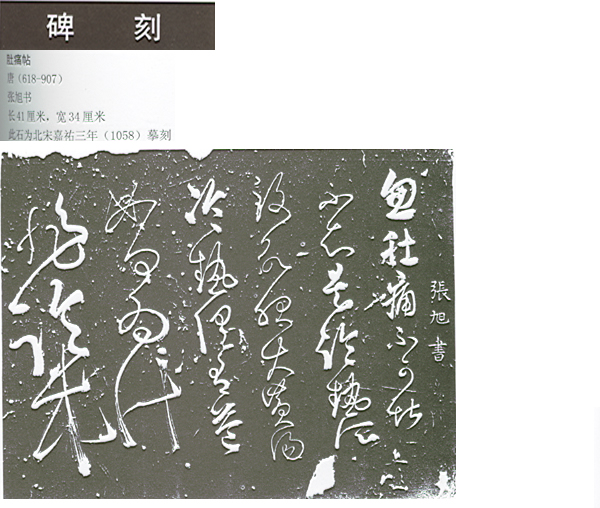 碑 刻
肚痛帖
唐（618-907）
张旭书
长41厘米，宽34厘米
此石为北宋嘉祐三年（1058）摹刻
張旭書
忽肚痛不可堪
不知是冷熱所
致欲服大黄湯
冷熱俱有益
如何為計
非臨床